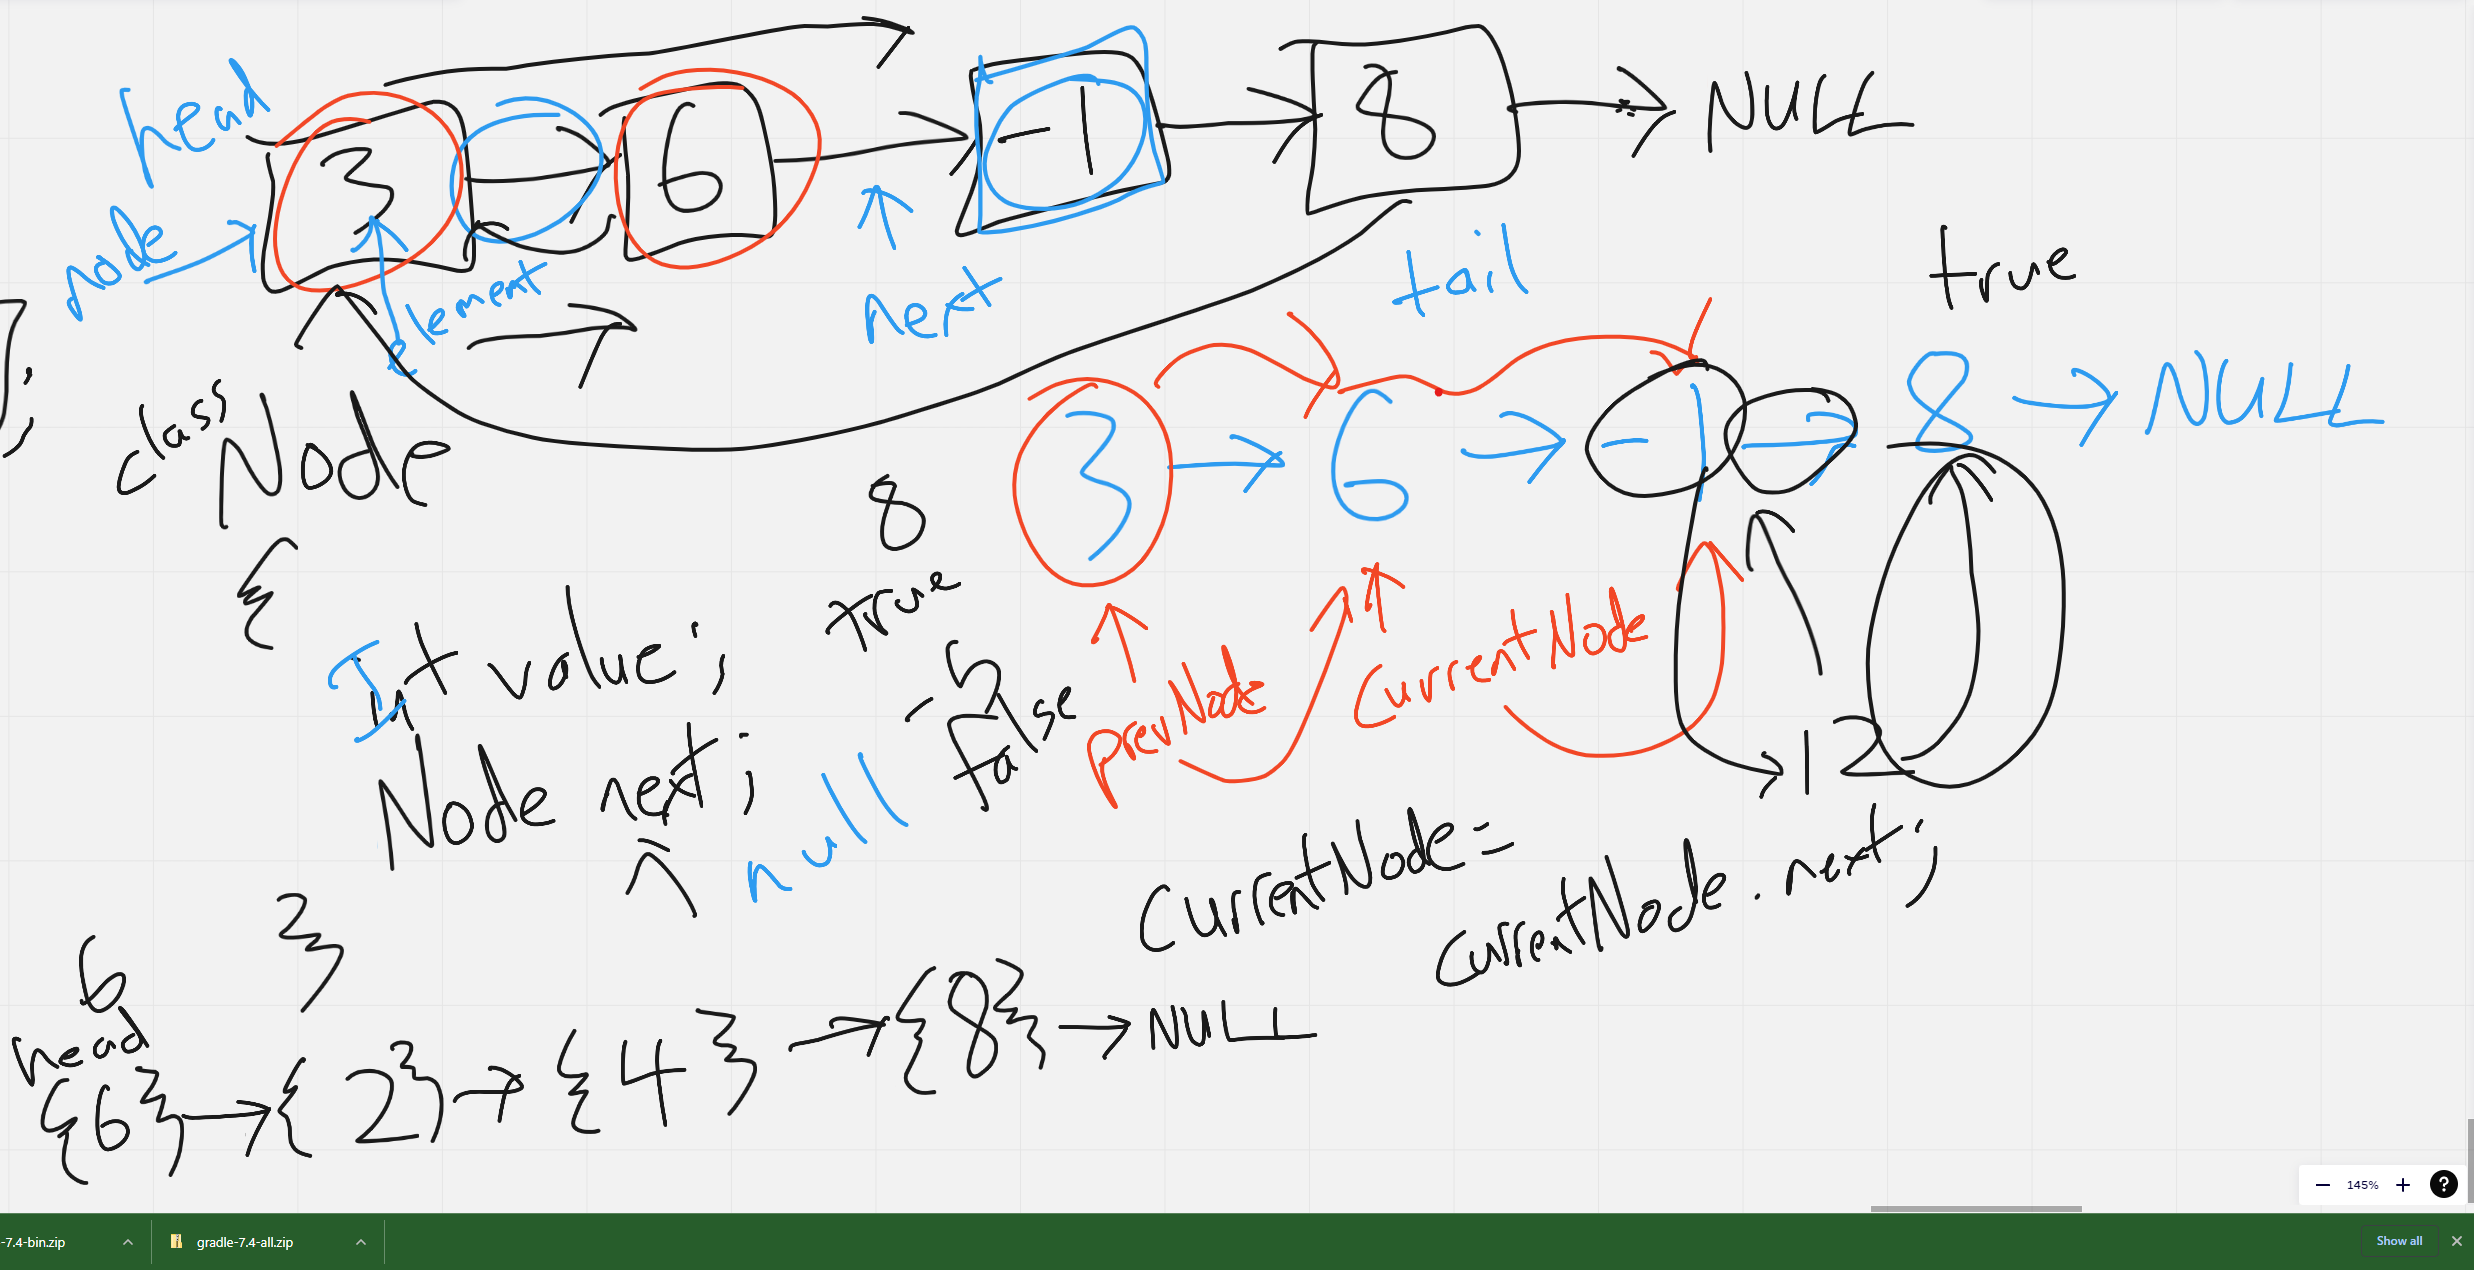 head
3 → 6 → -1 → 8 → NULL
Node
element
next
tail
true
;
class
Node
{
Int value;
Node next;
null
}
8
true
-5
false
3 → 6 → -1 → 8 → NULL
prevNode
CurrentNode
12
CurrentNode =
CurrentNode.next;
6
head
{6} → {2} → {4} → {8} → NULL
145%
-7.4-bin.zip
gradle-7.4-all.zip
Show all